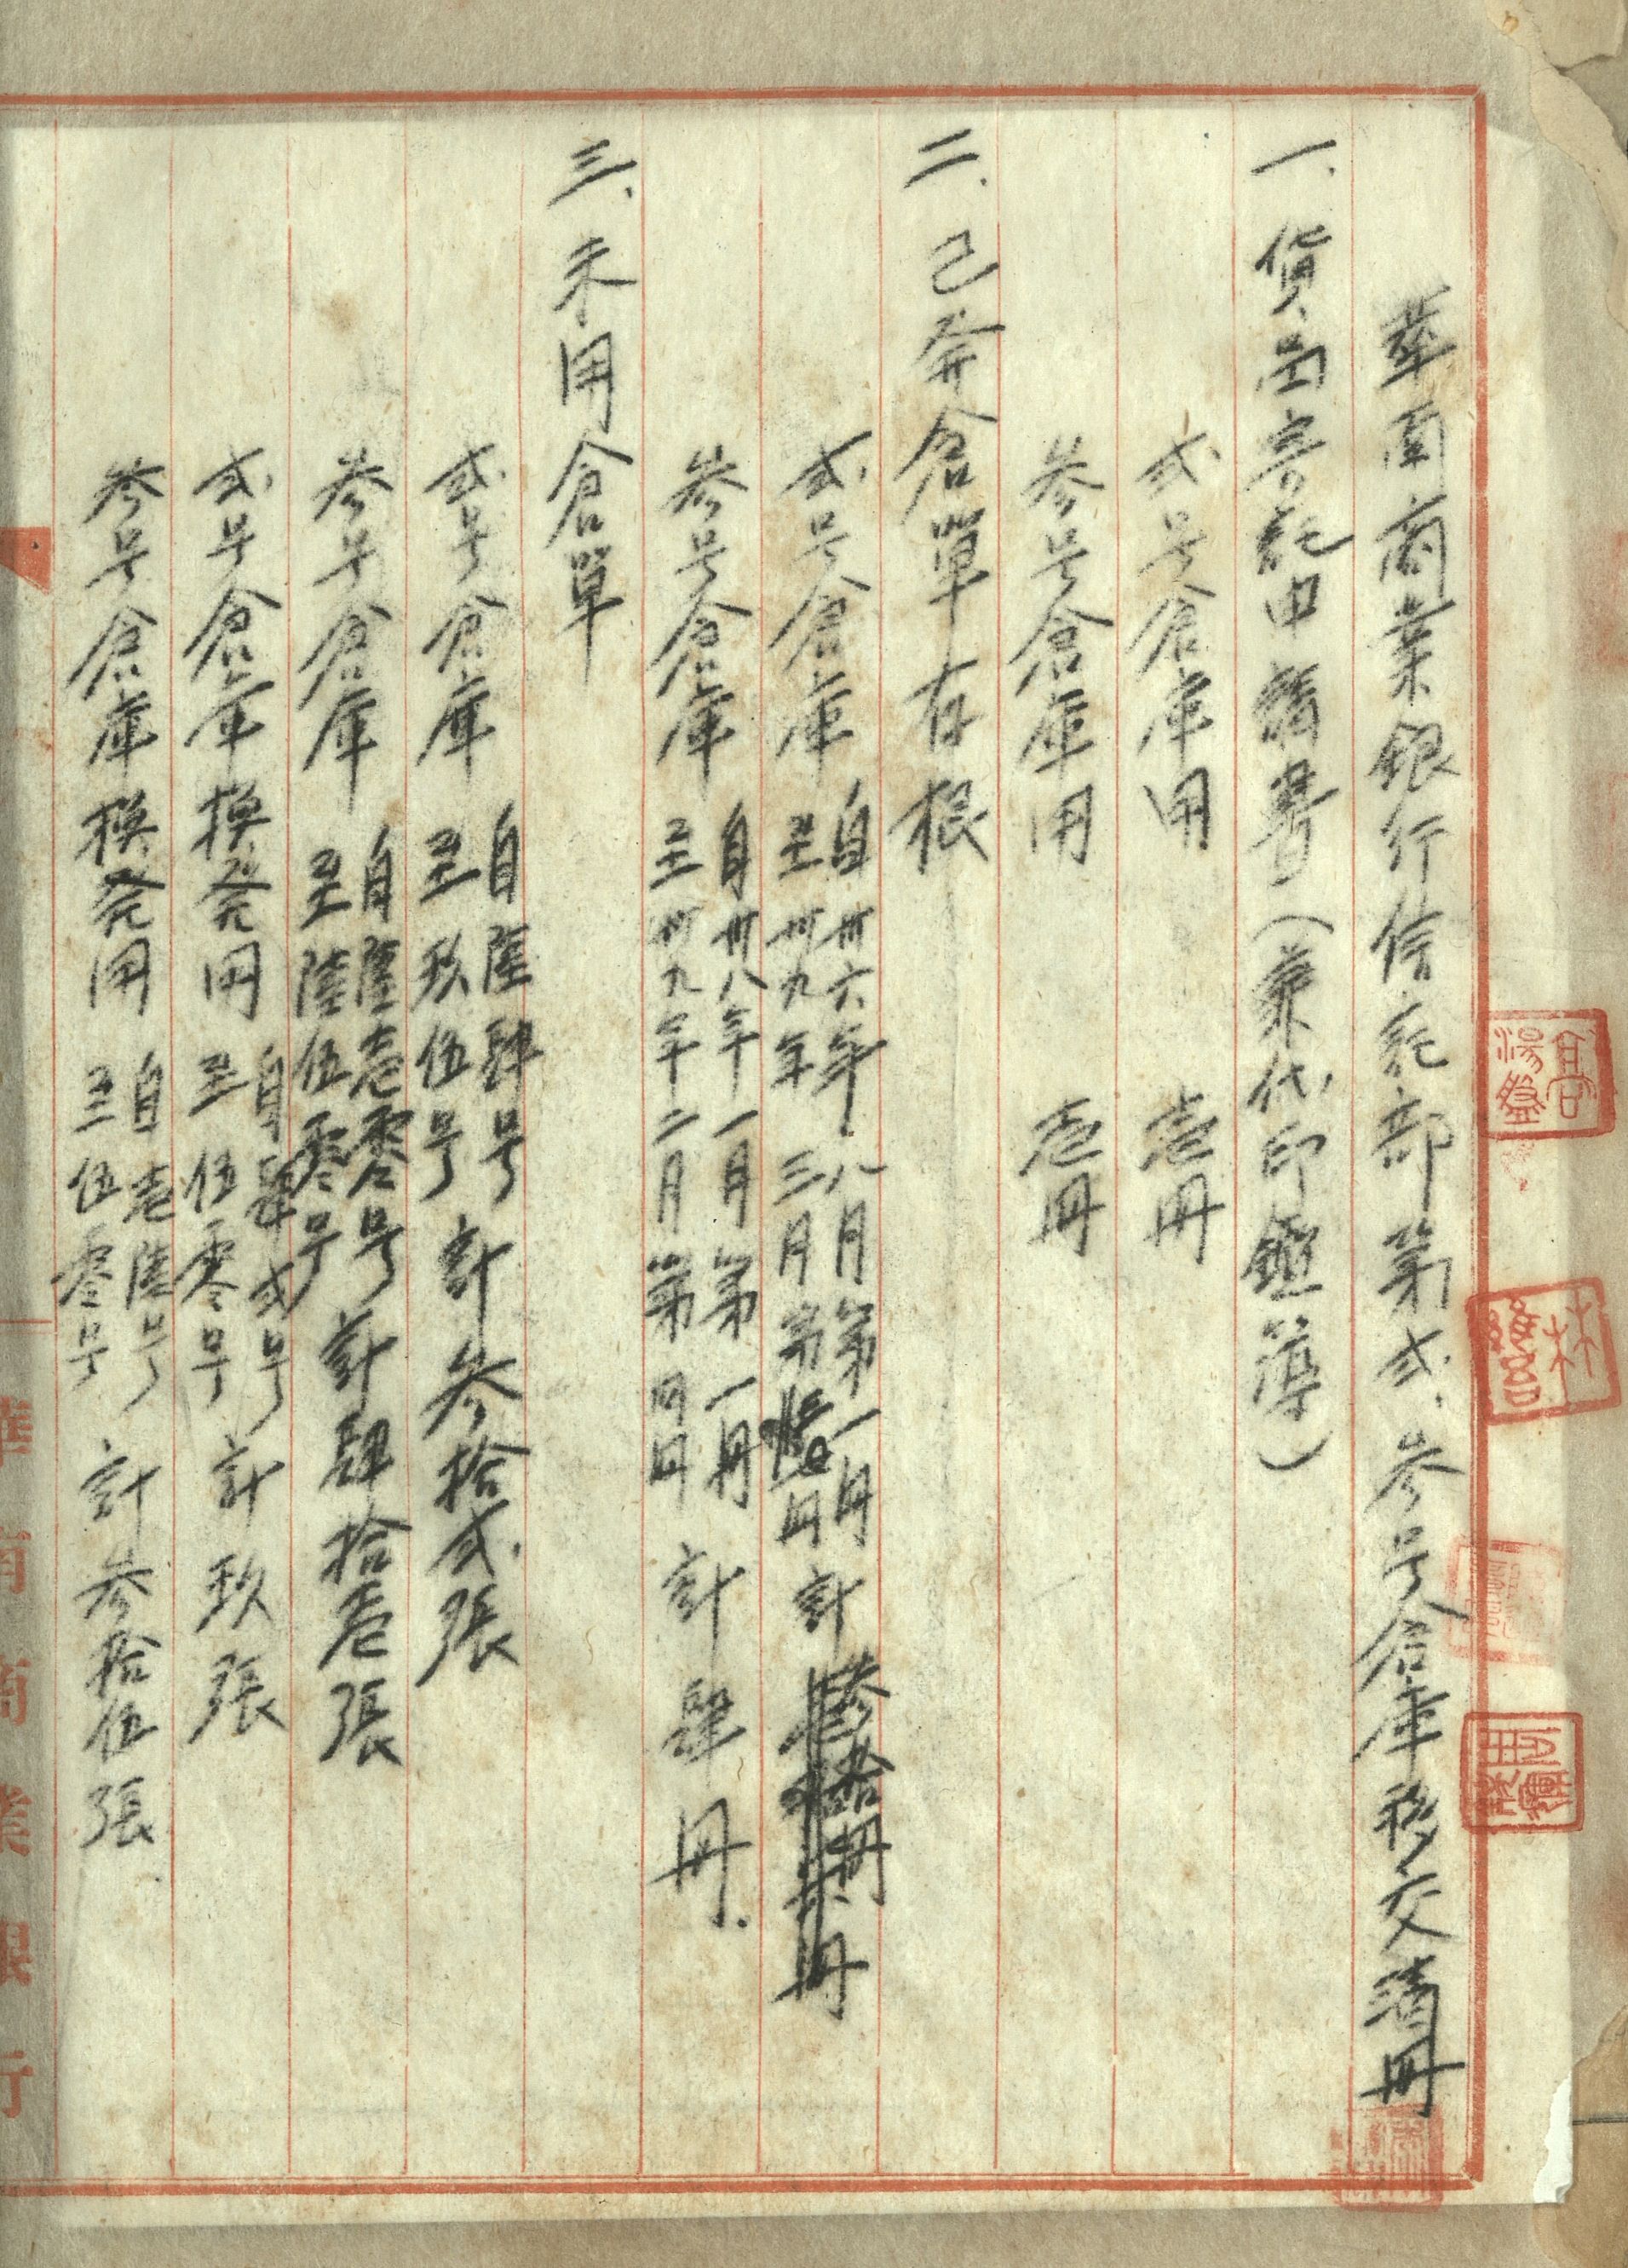 華南商業銀行信託部第弍、參号倉庫移交清冊
一、貨品寄託申請書(兼代印鑑簿)
弍号倉庫用 壱冊
參号倉庫用 壱冊
二、已發倉單存根
弍号倉庫 自卅六年八月第一冊
至卅九年三月第拾冊 計拾冊
參号倉庫 自卅八年一月第一冊
至卅九年二月第四冊 計肆冊.
三、未用倉單
弍号倉庫 自陸肆号
至玖伍号 計參拾弍張
參号倉庫 自陸壱零号
至陸伍零号 計肆拾壱張
弍号倉庫換発用 自肆弍号
至伍零号 計玖張
參号倉庫換発用 自壱陸号
至伍零号 計參拾伍張
華南商業銀行